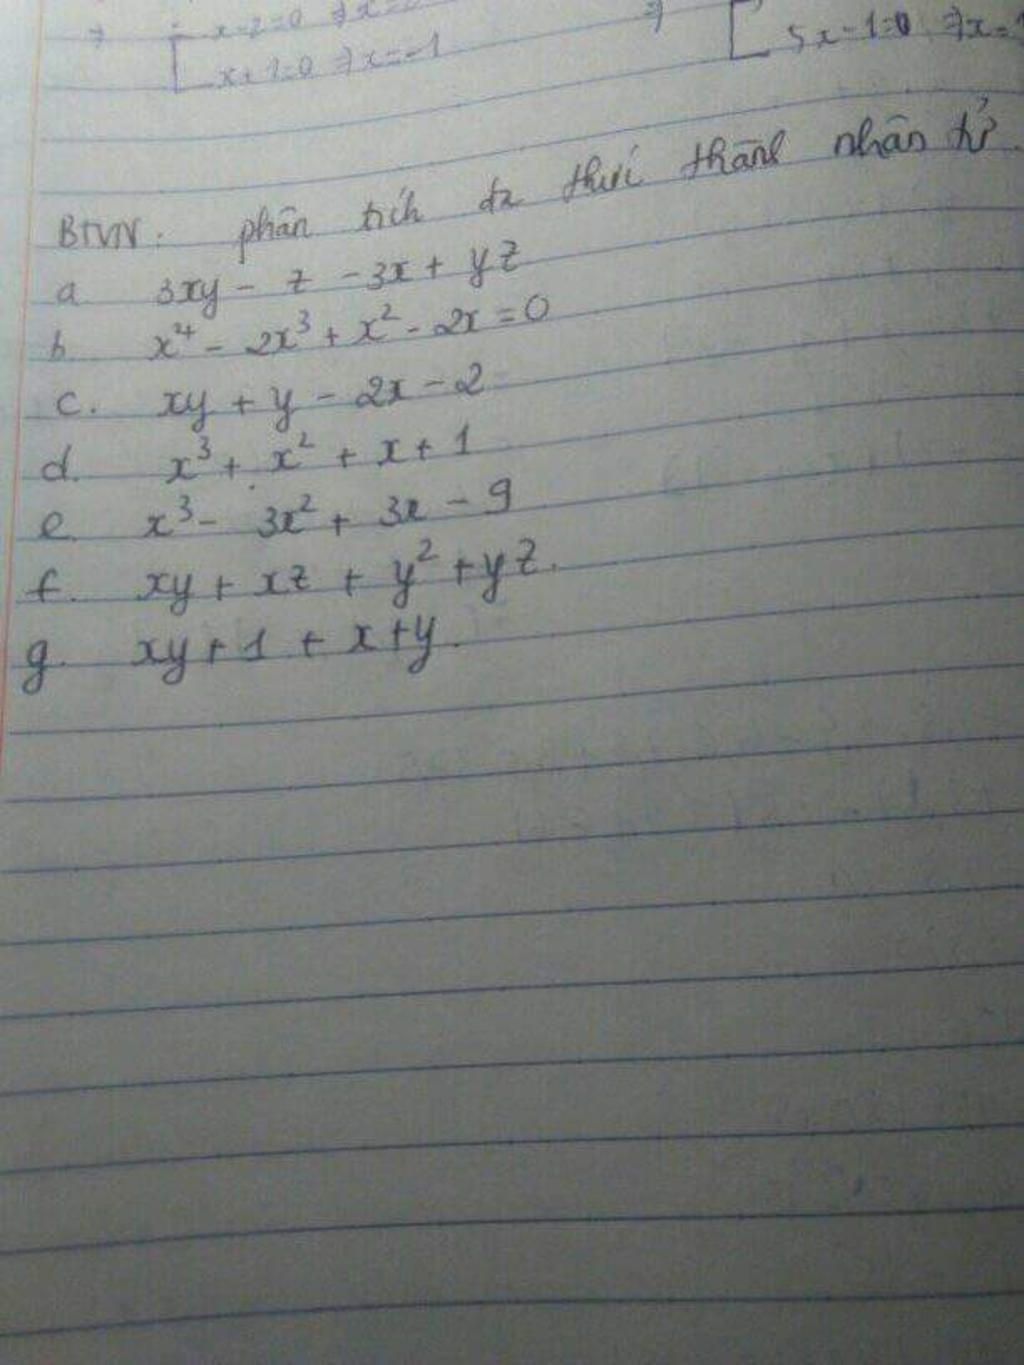 ⇒ [ x-2=0 ⇒ x= ⇒ [
x+1=0 ⇒ x=-1 5x-1=0 ⇒ x=
BTVN: phân tích đa thức thành nhân tử
a 3xy - z - 3x + yz
b. x⁴ - 2x³ + x² - 2x = 0
c. xy + y - 2x - 2
d. x³ + x² + x + 1
e x³ - 3x² + 3x - 9
f. xy + xz + y² + yz.
g. xy + 1 + x + y.